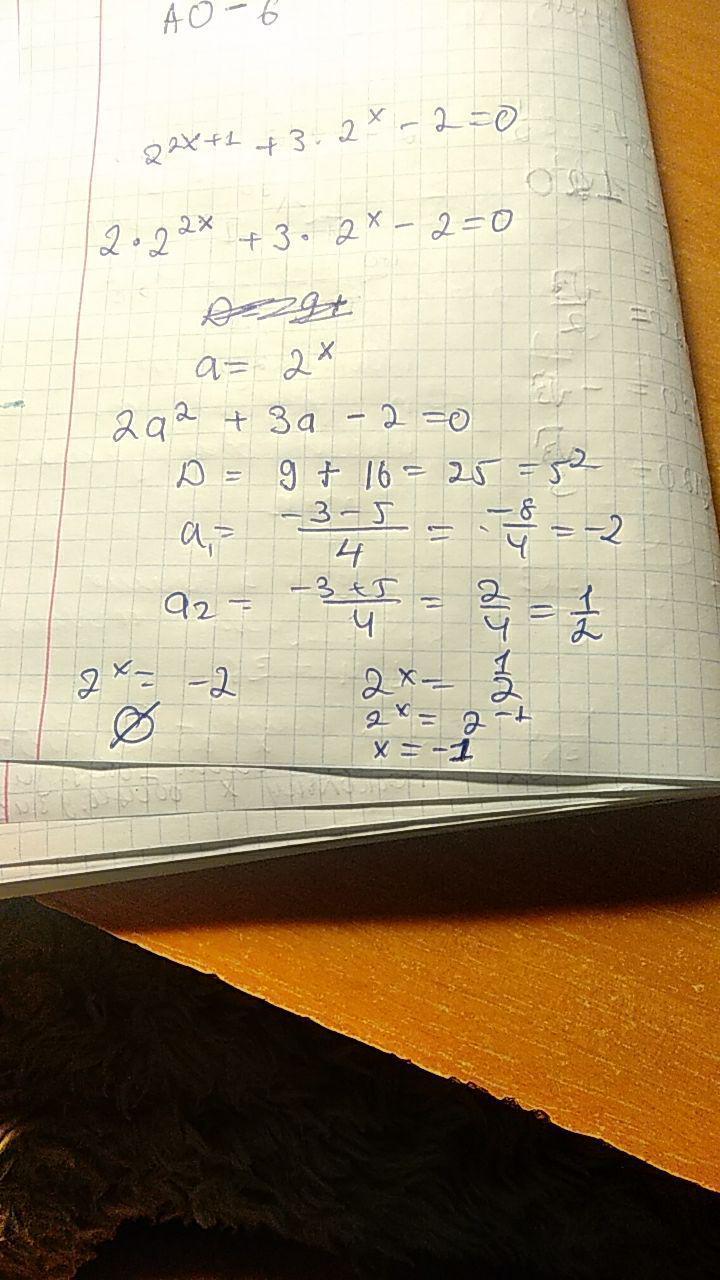 AO - 6
2^{2x+1} + 3 · 2^x - 2 = 0
2 · 2^{2x} + 3 · 2^x - 2 = 0
a = 2^x
2a^2 + 3a - 2 = 0
D = 9 + 16 = 25 = 5^2
a_1 = \frac{-3-5}{4} = -\frac{8}{4} = -2
a_2 = \frac{-3+5}{4} = \frac{2}{4} = \frac{1}{2}
2^x = -2    2^x = \frac{1}{2}
∅    2^x = 2^{-1}
x = -1